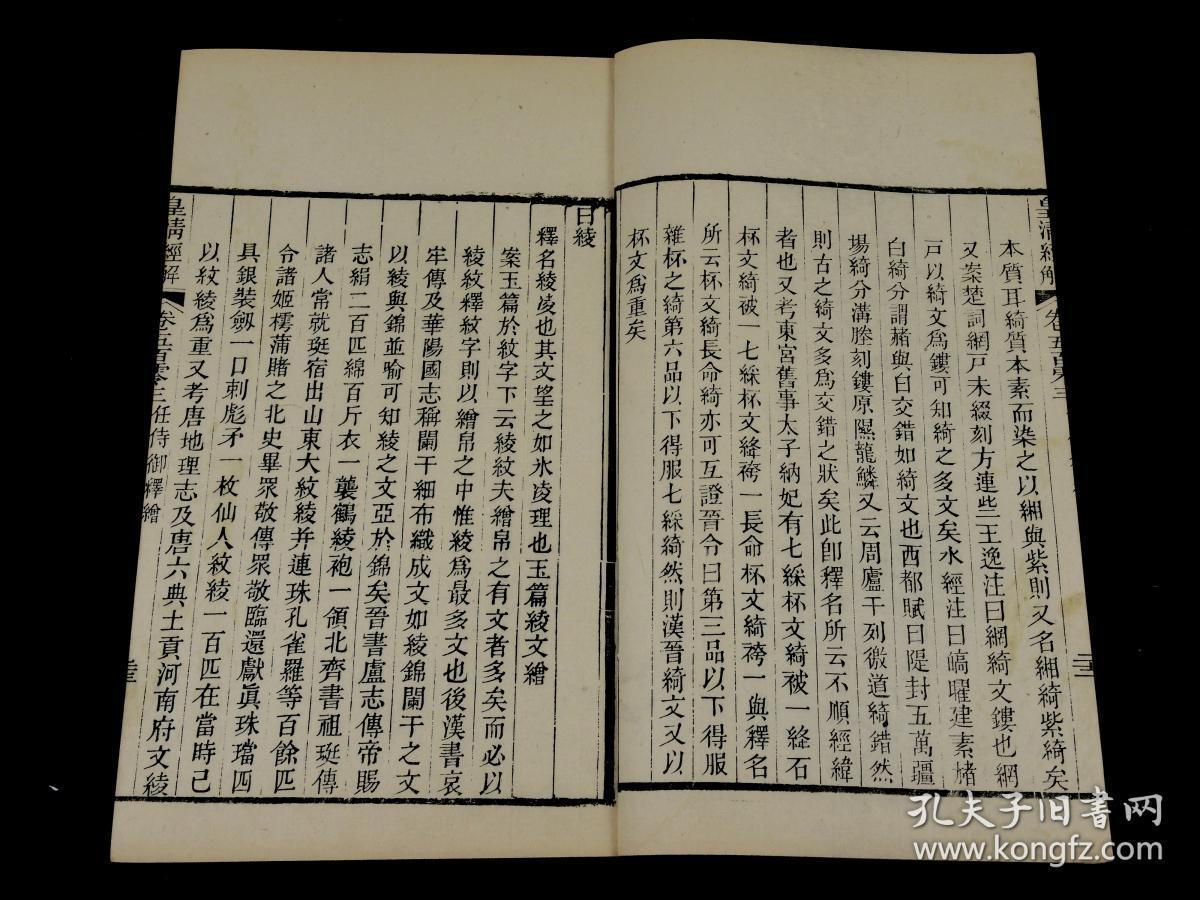 皇清經解
卷五百零三
二十二
本質耳綺質本素而染之以緗與紫則又名緗綺紫綺矣
又案楚詞網戸朱綴刻方連些王逸注曰網綺文鏤也網
戸以綺文爲鏤可知綺之多文矣水經注曰皜曜建素赭
白綺分謂赭與白交錯如綺文也西都賦曰隄封五萬疆
場綺分溝塍刻鏤原隰龍鱗又云周廬千列徼道綺錯然
則古之綺文多爲交錯之狀矣此卽釋名所云不順經緯
者也又考東宮舊事太子納妃有七綵杯文綺被一絳石
杯文綺被一七綵杯文絳袴一長命杯文綺袴一與釋名
所云杯文綺長命綺亦可互證晉令曰第三品以下得服
雜杯之綺第六品以下得服七綵綺然則漢晉綺文又以
杯文爲重矣
曰綾
釋名綾凌也其文望之如氷凌理也玉篇綾文繒
案玉篇於紋字下云綾紋夫繒帛之有文者多矣而必以
綾紋釋紋字則以繒帛之中惟綾爲最多文也後漢書哀
牢傳及華陽國志稱闌干細布織成文如綾錦闌干之文
以綾與錦並喻可知綾之文亞於錦矣晉書盧志傳帝賜
志絹二百匹綿百斤衣一襲鶴綾袍一領北齊書祖珽傳
諸人常就珽宿出山東大紋綾幷連珠孔雀羅等百餘匹
令諸姬樗蒲賭之北史畢眾敬傳眾敬臨還獻眞珠璫四
具銀裝劔一口刺彪矛一枚仙人紋綾一百匹在當時已
以紋綾爲重又考唐地理志及唐六典土貢河南府文綾
皇清經解
卷五百零三任侍御釋繒
孔夫子旧书网
www.kongfz.com